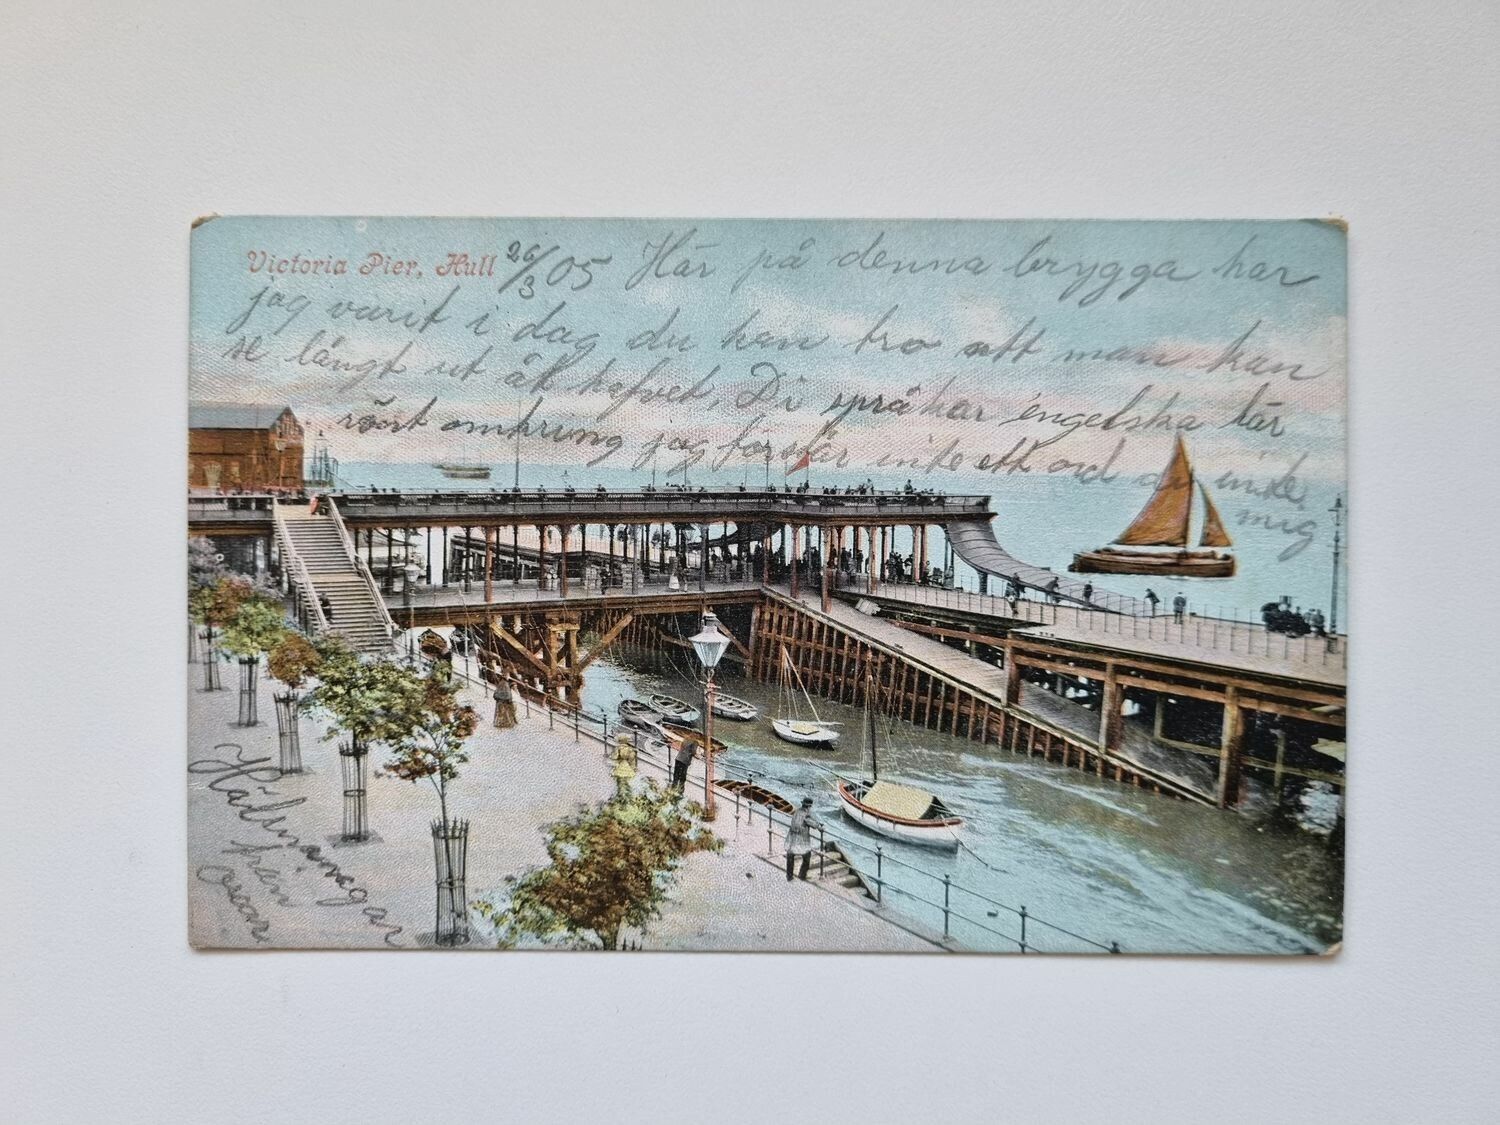 Victoria Pier, Hull 26/3 05 Här på denna brygga har
jag varit i dag du kan tro att man kan
se långt ut åt hafvet, Di språkar engelska här
rönt omkrung jag förstår inte ett ord di inte
mig
Hälsningar
från